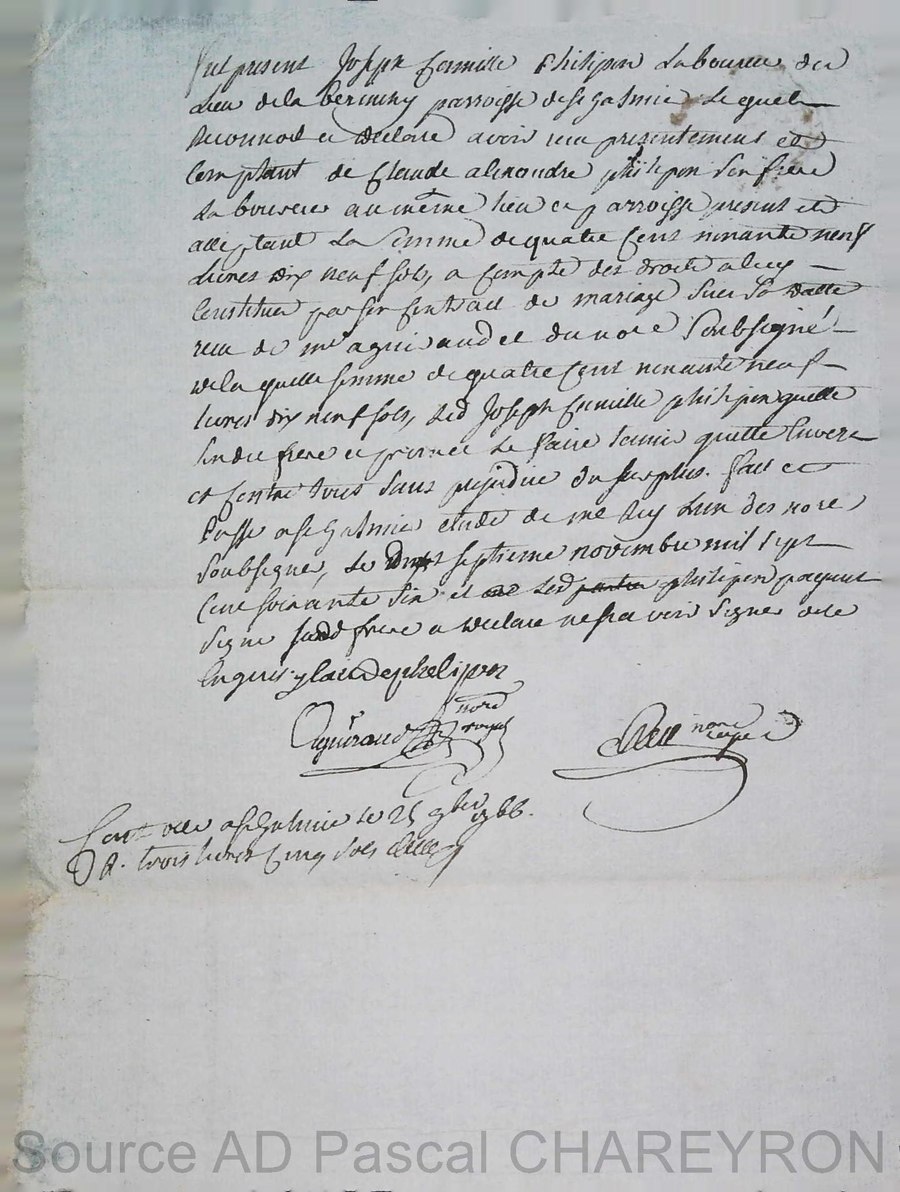 Fut present Joseph Camille Philipon Laboureur du
Lieu de la parroisse de St Galmie Lequel
Reconnoit et declare avoir reçu presentement et
Comptant de Claude alexandre philipon Son frere
Laboureur au même lieu et parroisse present et
acceptant La Somme de quatre Cent nonante neuf
Livres dix neuf sols, a Compte des droits a luy
Constitué par son Contract de mariage Sur Sa datte
recu de me aguiraud et du nore Soubsigné
de laquelle somme de quatre Cent nonante neuf
livres dix neuf sols, Led Joseph Camille philipon quitte
Sondit frere et promet Le faire tenir quitte Envers
et Contre tous Sans prejudice du surplus. fait et
Passé a St Galmie étude de me L'un des nores
Soubsigné, Le septieme novembre mil sept
Cent soixante Six et Led philipon payeur
Signé Sond frere a declaré ne sçavoir Signer de ce
Enquis Claude phelipon
Aguiraud nore royal
nore royal
Cont. olle a St Galmie le 25 9bre 1766.
R. trois livres Cinq sols
Source AD Pascal CHAREYRON